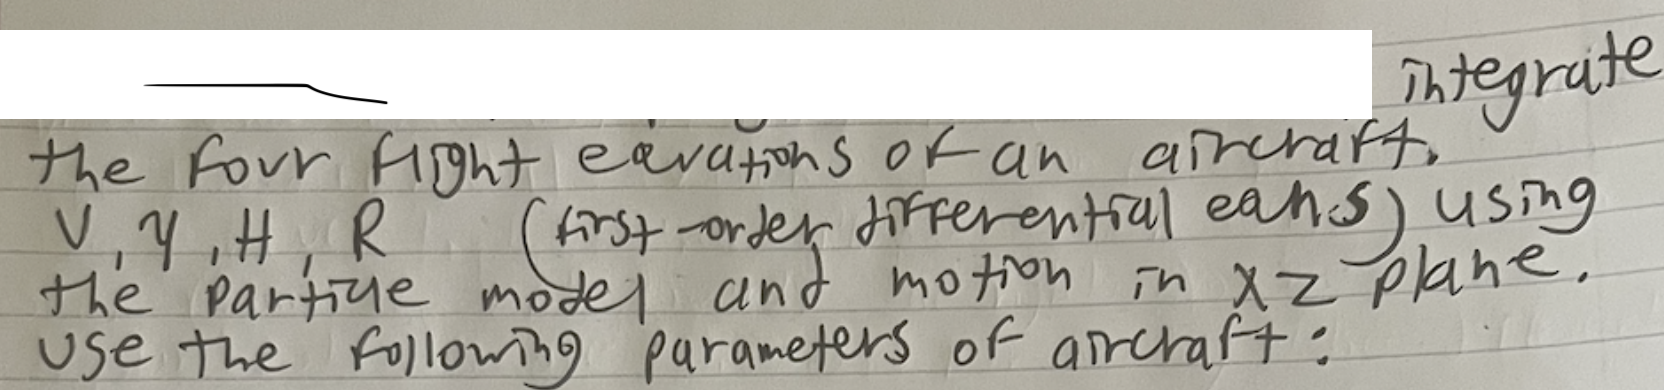 integrate
the four flight equations of an aircraft.
V, γ, H, R (first-order differential eqns) using
the particle model and motion in xz plane.
Use the following parameters of aircraft: